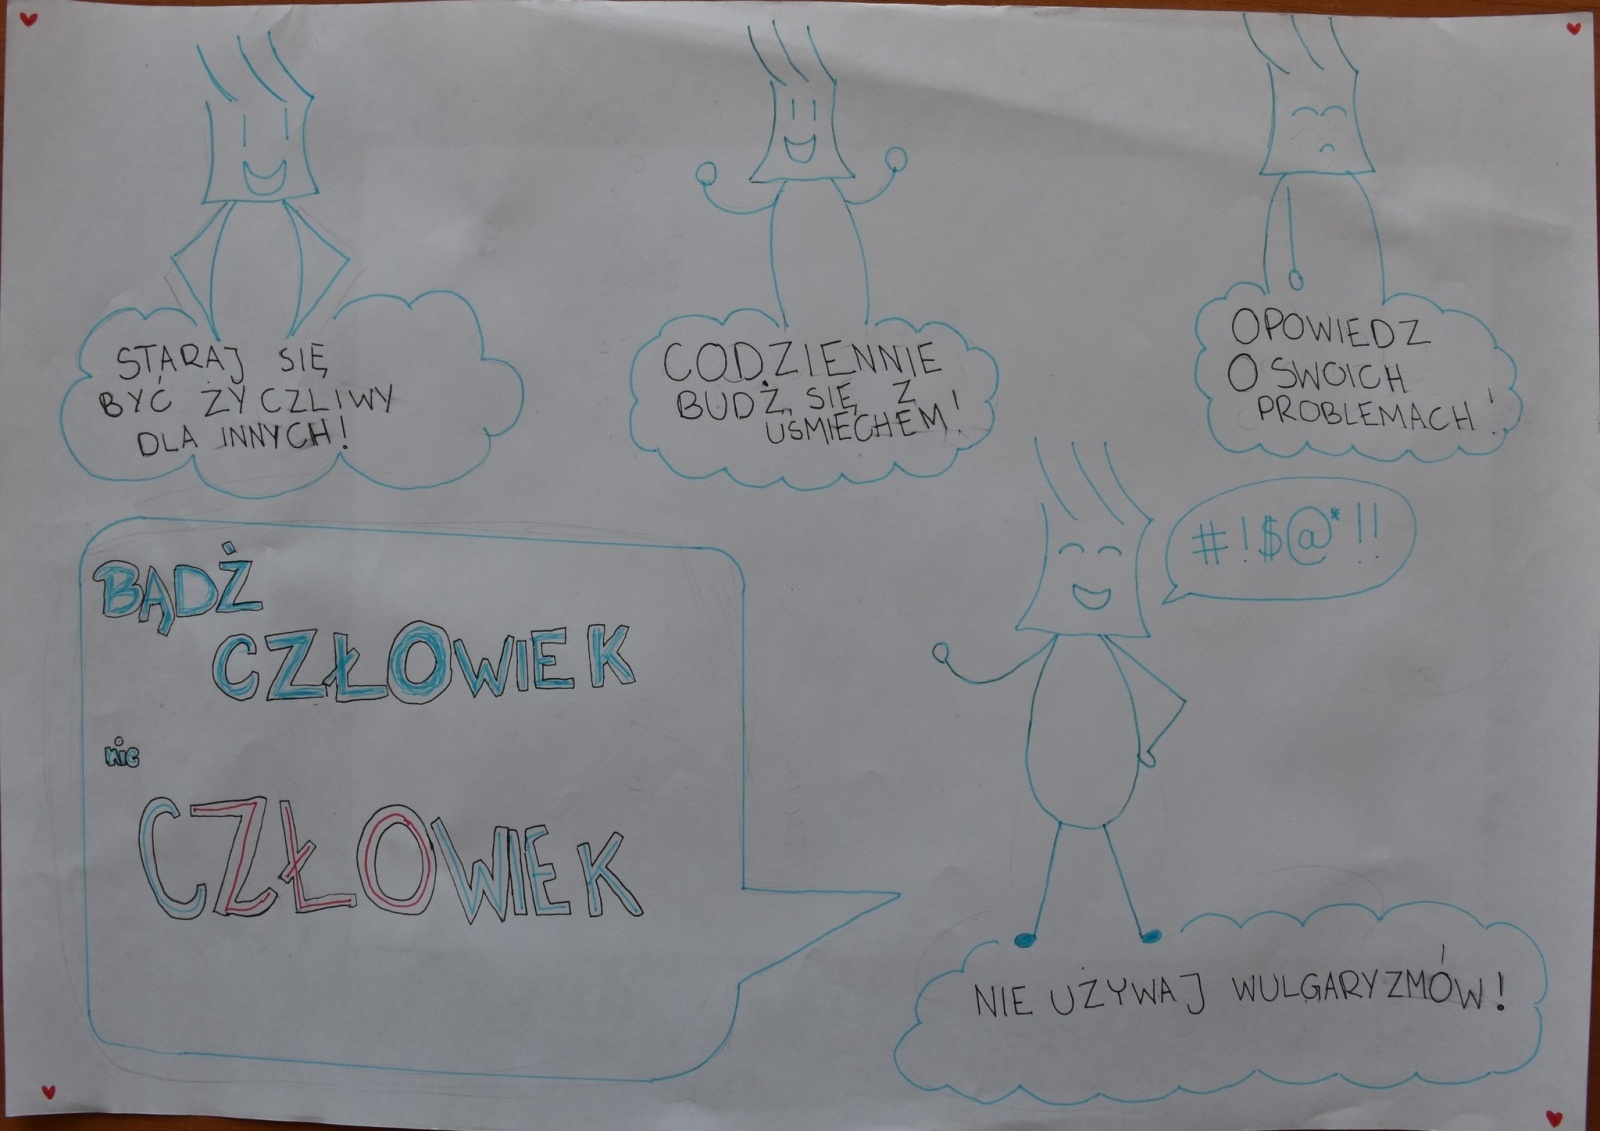 STARAJ SIĘ
BYĆ ŻYCZLIWY
DLA INNYCH!
CODZIENNIE
BUDŹ SIĘ Z
UŚMIECHEM!
OPOWIEDZ
O SWOICH
PROBLEMACH!
#!$@*!!
BĄDŻ
CZŁOWIEK
nie
CZŁOWIEK
NIE UŻYWAJ WULGARYZMÓW!